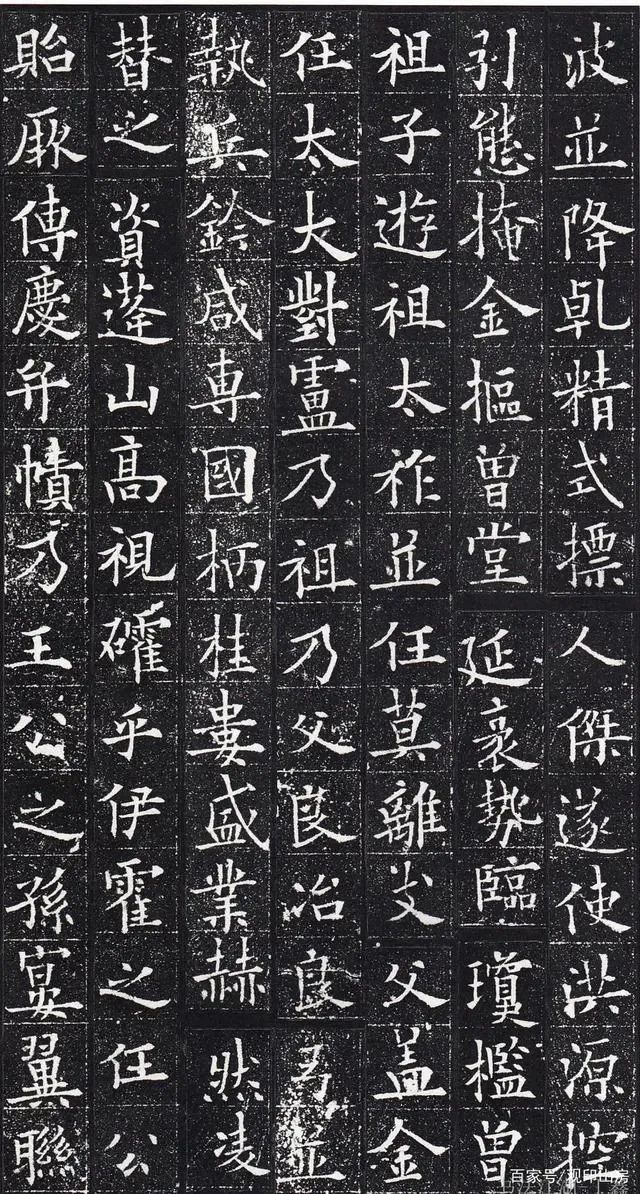 波並降乹精式摽人傑遂使洪源控
引態掩金摳曾堂延袤勢臨瓊檻曾
祖子遊祖太祚並任莫離支父盖金
任太大對盧乃祖乃父良冶良弓並
執兵鈐咸専國柄桂婁盛業赫然凌
替之資蓬山高視礭乎伊霍之任公
貽厥傳慶弁幘乃王公之孫宴翼聯
百家号/观印山房